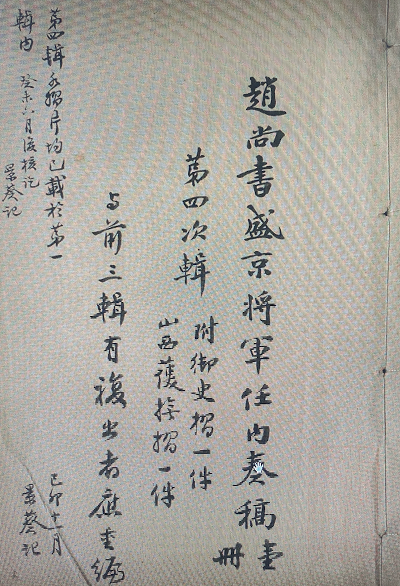 趙尚書盛京將軍任内奏稿 壹冊
第四次輯
附御史摺一件
山西護摺一件
与前三輯有複出者應重編
己卯十一月
景葵記
第四輯各摺片均已載於第一
輯内 癸未六月後核訖
景葵記